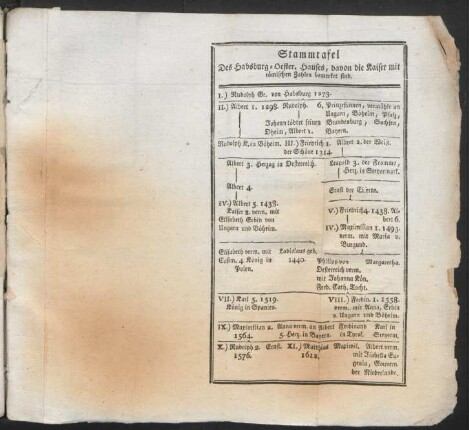 Stammtafel
Des Habsburg-Oester. Hauses, davon die Kaiser mit
römischen Zahlen bemerket sind.
I.) Rudolph Gr. von Habsburg 1273.
II.) Albert 1. 1298. Rudolph. 6. Prinzessinnen, vermählt an
Ungarn, Böheim, Pfalz,
Johann tödtet seinen Brandenburg, Sachsen,
Oheim, Albert 1. Bayern.
Rudolph K. in Böheim. III.) Friedrich 1. Albert 2. der Weise.
der Schöne 1314.
Albert 3. Herzog in Oesterreich. Leopold 3. der Fromme,
Herz. in Steyermark.
Albert 4. Ernst der Eiserne.
IV.) Albert 5. 1438. V.) Friedrich 4. 1438. Al-
Kaiser 2. verm. mit bert 6.
Elisabeth Erbin von IV.) Maximilian 1. 1493.
Ungarn und Böheim. verm. mit Maria v.
Burgund.
Elisabeth verm. mit Ladislaus geb.
Casim. 4 König in 1440. Philipp von Margaretha.
Polen. Oesterreich verm.
mit Johanna Kön.
Ferd. Cath. Tocht.
VII.) Karl 5. 1519. VIII.) Ferdin. 1. 1558.
König in Spanien. verm. mit Anna, Erbin
v. Ungarn und Böheim.
IX.) Maximilian 2. Anna verm. an Albert Ferdinand Karl in
1564. 5. Herz. in Bayern. in Tyrol. Steyerm.
X.) Rudolph 2. Ernst. XI.) Matthias Maximil. Albert verm.
1576. 1612. mit Isabella Eu-
genia, Gouvern.
der Niederlande.